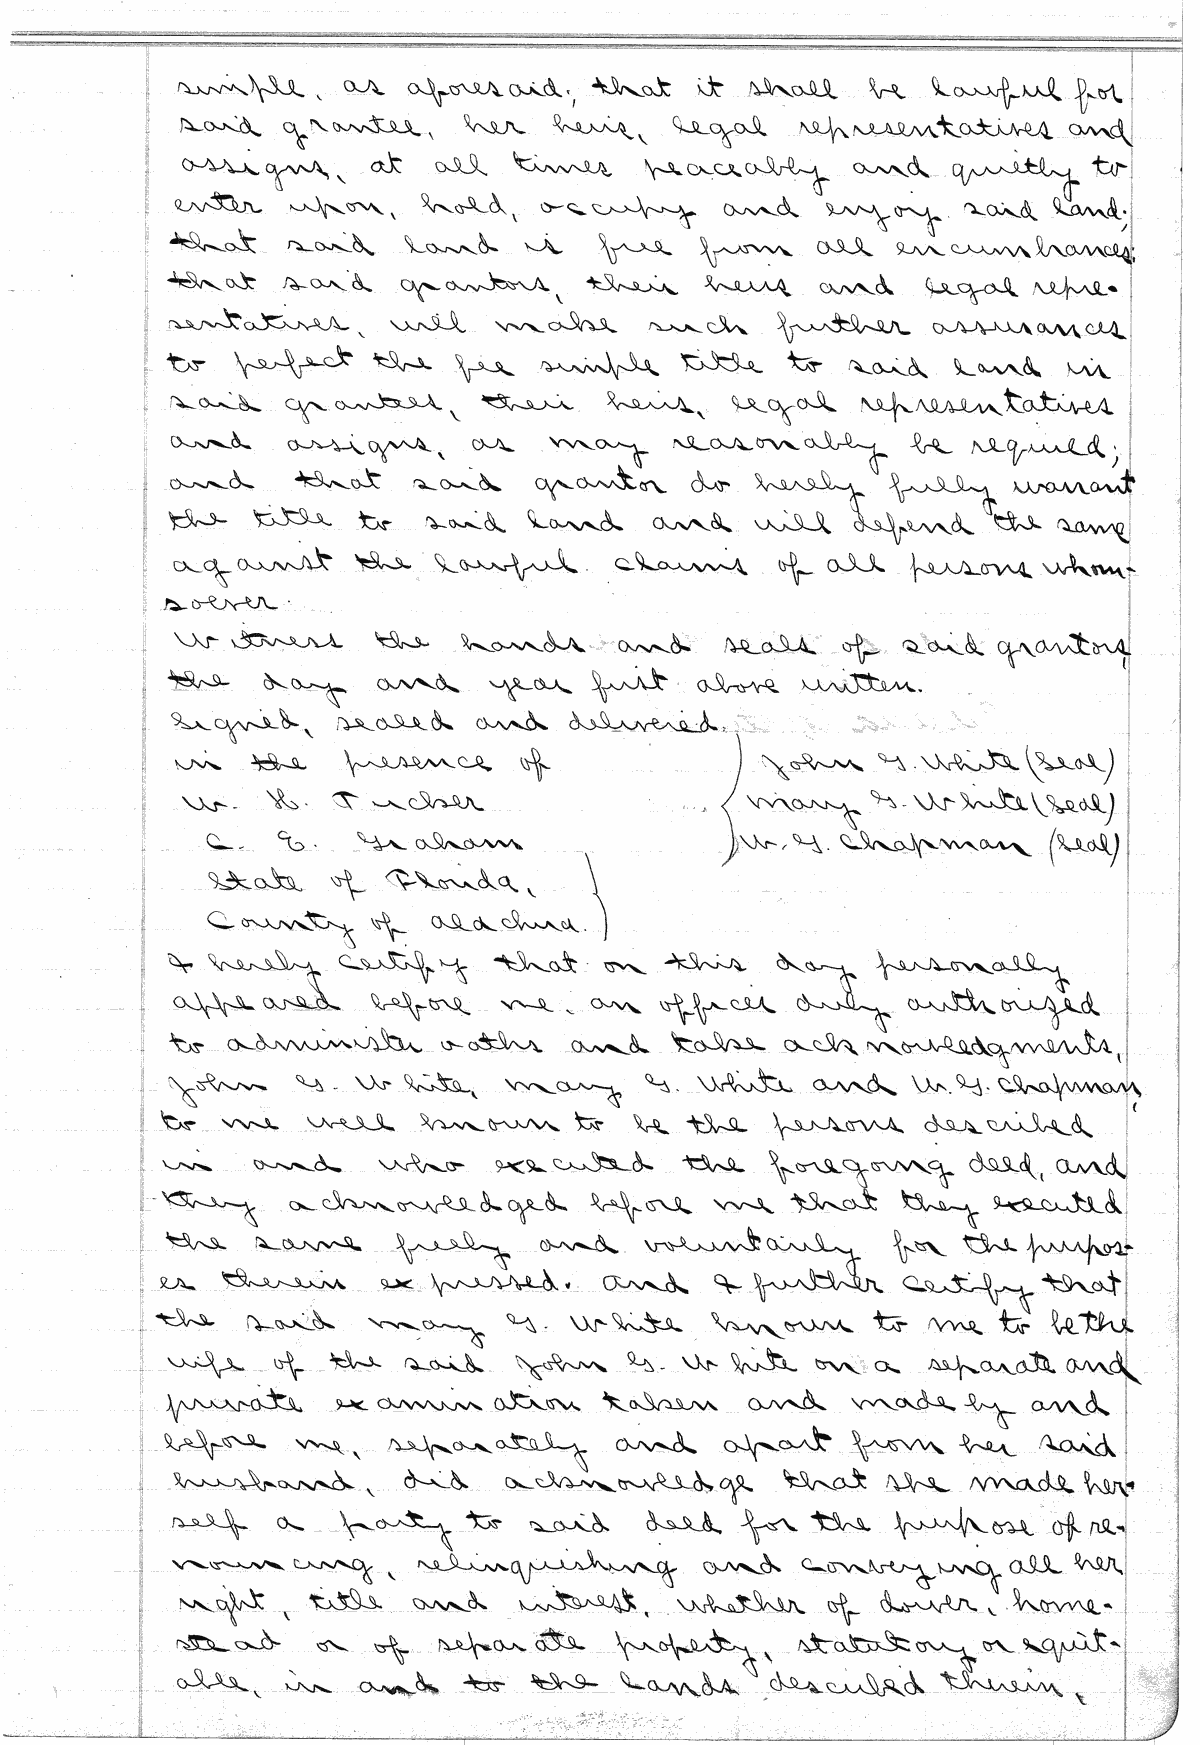 simple, as aforesaid; that it shall be lawful for
said grantee, her heirs, legal representatives and
assigns, at all times peaceably and quietly to
enter upon, hold, occupy and enjoy said land;
that said land is free from all encumbrances;
that said grantors, their heirs and legal repre-
sentatives, will make such further assurances
to perfect the fee simple title to said land in
said grantees, their heirs, legal representatives
and assigns, as may reasonably be required;
and that said grantor do hereby fully warrant
the title to said land and will defend the same
against the lawful claims of all persons whom-
soever.
Witness the hands and seals of said grantors,
the day and year first above written.
Signed, sealed and delivered
in the presence of } John G. White (Seal)
W. H. Tucker } Mary G. White (Seal)
C. E. Graham } W. G. Chapman (Seal)
State of Florida, }
County of Alachua. }
I hereby certify that on this day personally
appeared before me, an officer duly authorized
to administer oaths and take acknowledgments,
John G. White, Mary G. White and W. G. Chapman,
to me well known to be the persons described
in and who executed the foregoing deed, and
they acknowledged before me that they executed
the same freely and voluntarily for the purpos-
es therein expressed. And I further certify that
the said Mary G. White known to me to be the
wife of the said John G. White on a separate and
private examination taken and made by and
before me, separately and apart from her said
husband, did acknowledge that she made her-
self a party to said deed for the purpose of re-
nouncing, relinquishing and conveying all her
right, title and interest, whether of dower, home-
stead or of separate property, statutory or equit-
able, in and to the lands described therein,